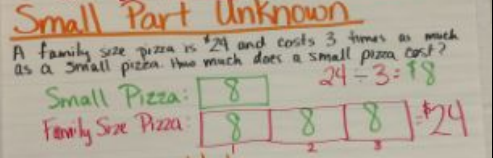 Small Part Unknown
A family size pizza is $24 and costs 3 times as much
as a small pizza. How much does a small pizza cost?
24 ÷ 3 = $8
Small Pizza: 8
Family Size Pizza: 8 8 8 = $24
1 2 3